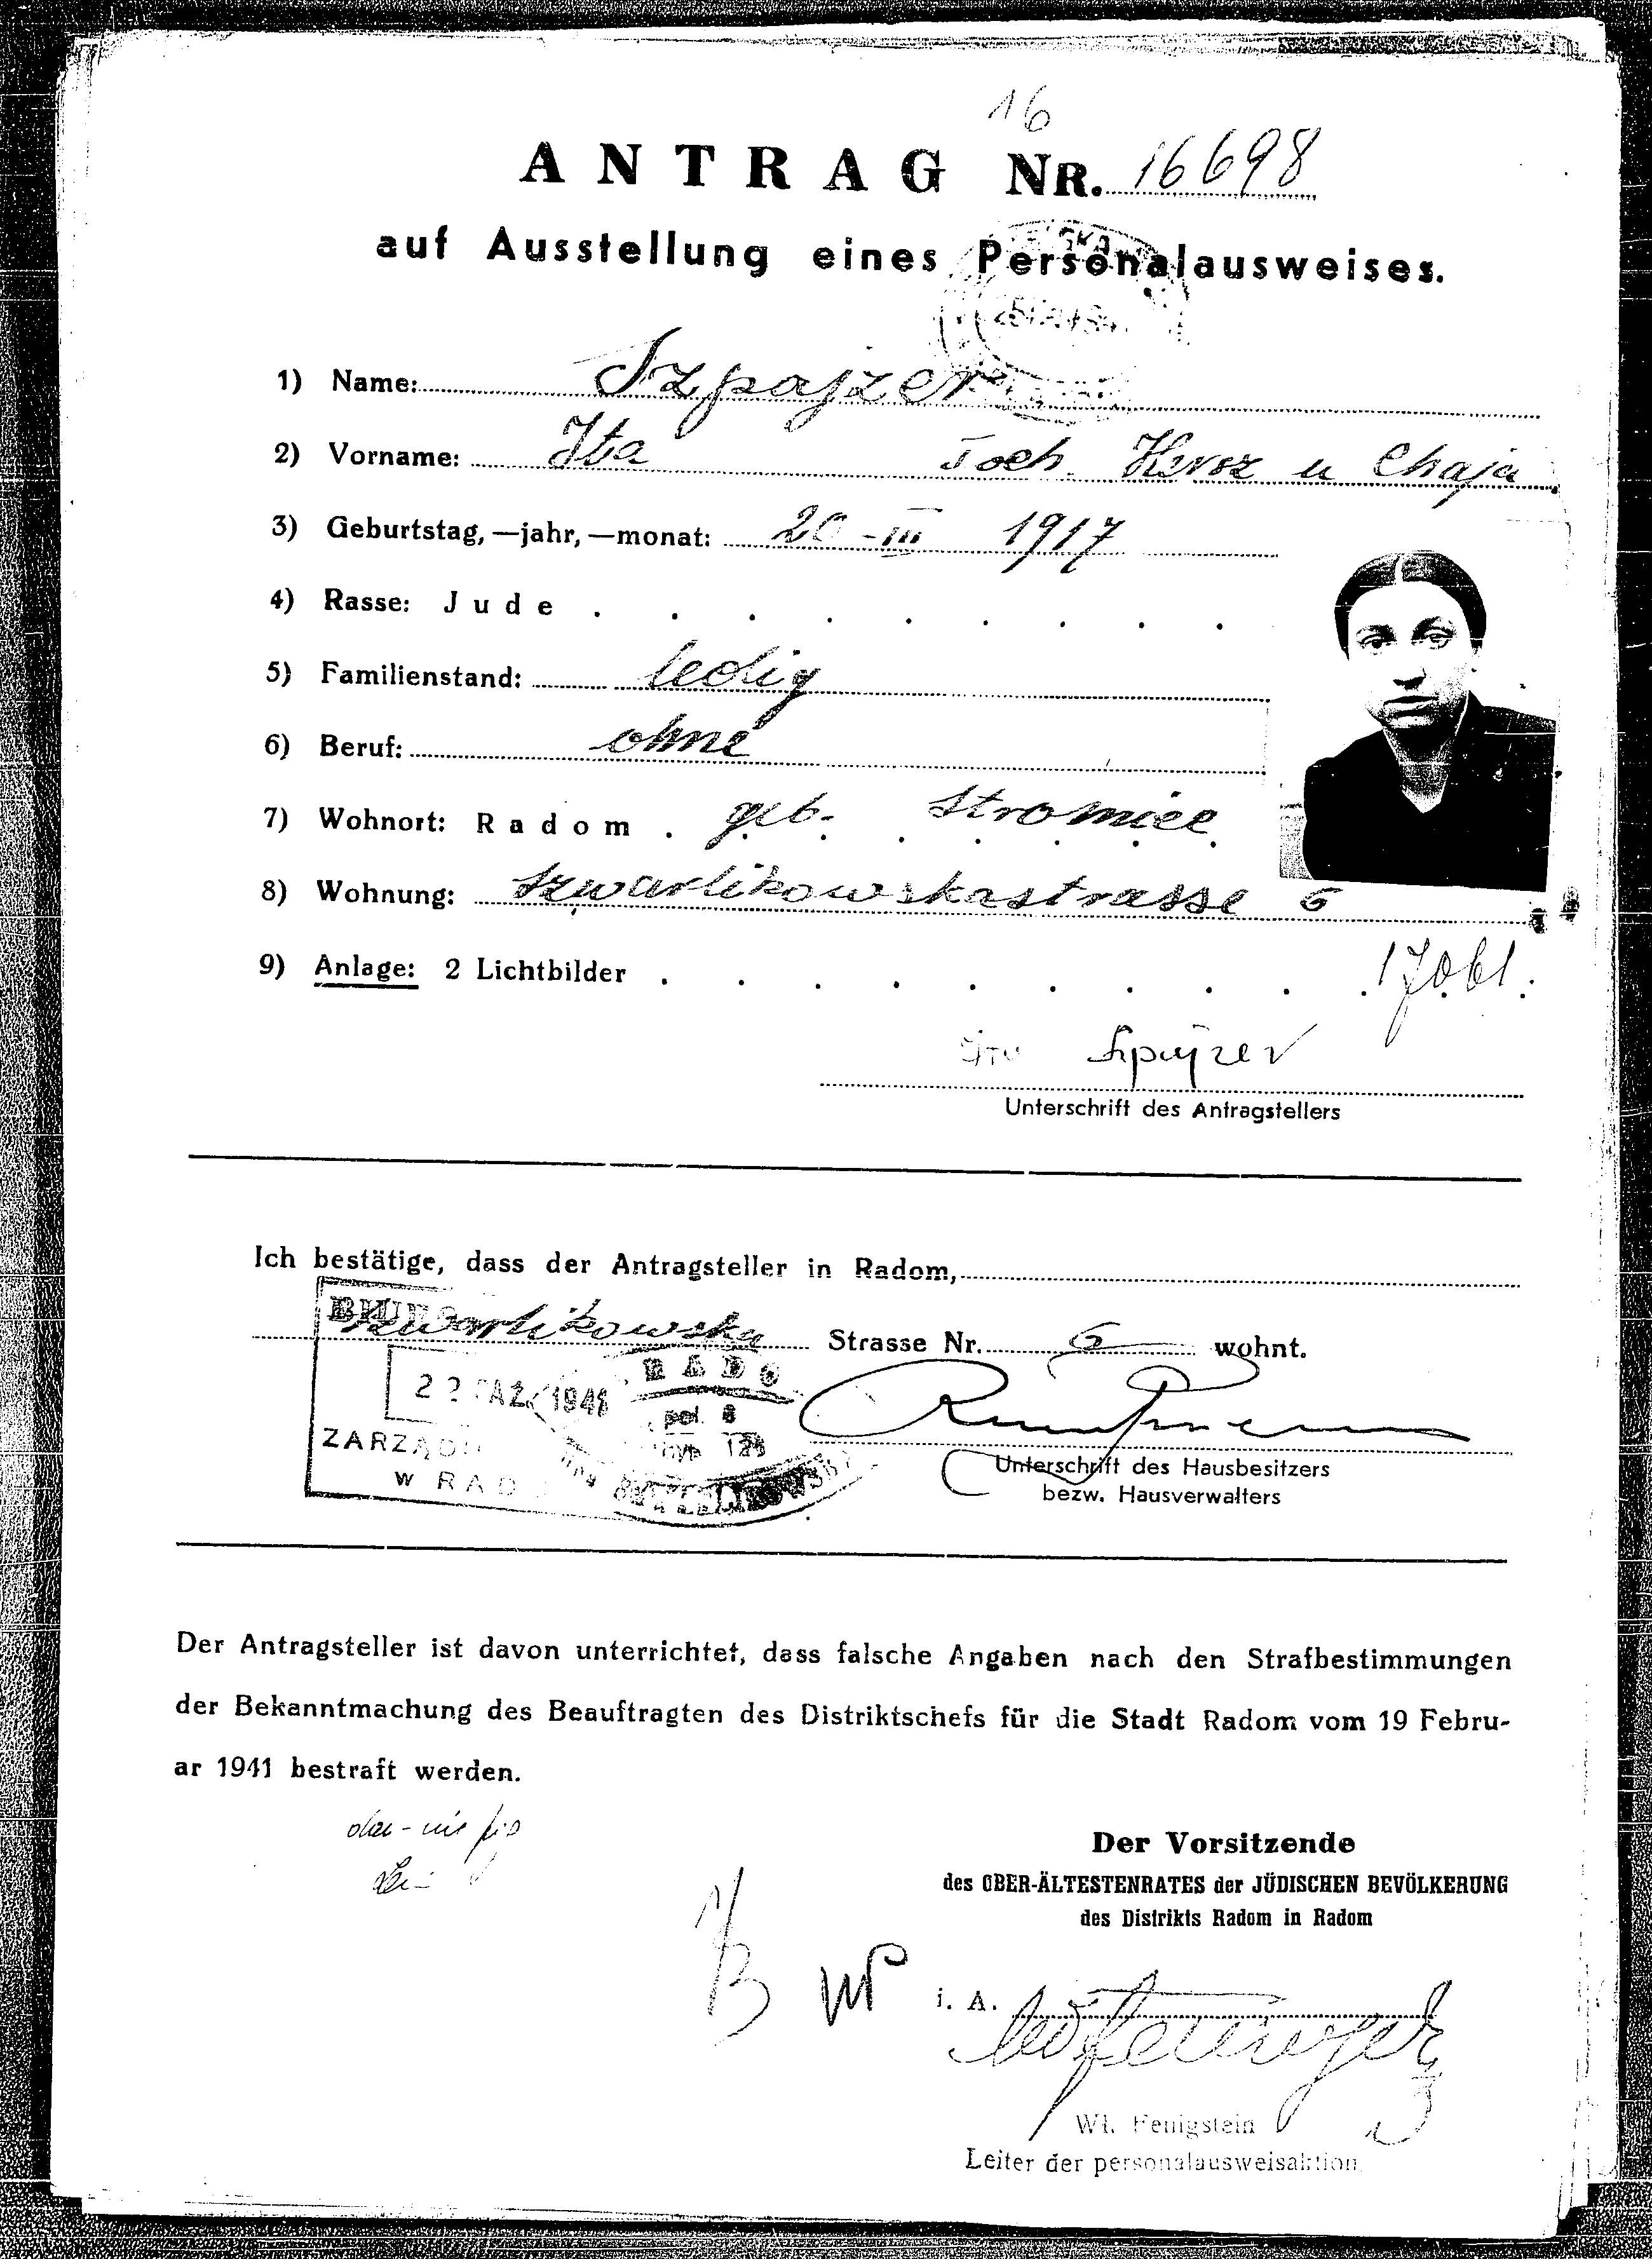 16
ANTRAG NR. 16698
auf Ausstellung eines Personalausweises.
1) Name: Szpajzer
2) Vorname: Ita Toch. Hersz u Chaja
3) Geburtstag, —jahr, —monat: 20 - III 1917
4) Rasse: Jude
5) Familienstand: ledig
6) Beruf: ohne
7) Wohnort: Radom. geb. Stromiec
8) Wohnung: Szwarlikowskastrasse 6
9) Anlage: 2 Lichtbilder
Szpajzer
Unterschrift des Antragstellers
Ich bestätige, dass der Antragsteller in Radom,
Szwarlikowska Strasse Nr. 6 wohnt.
RADO
1941
pol. 8
ZARZĄD
W RAD
Unterschrift des Hausbesitzers
bezw. Hausverwalters
Der Antragsteller ist davon unterrichtet, dass falsche Angaben nach den Strafbestimmungen
der Bekanntmachung des Beauftragten des Distriktschefs für die Stadt Radom vom 19 Febru-
ar 1941 bestraft werden.
Der Vorsitzende
des OBER-ÄLTESTENRATES der JÜDISCHEN BEVÖLKERUNG
des Distrikts Radom in Radom
i. A.
Wł. Fenigstein
Leiter der personalausweisaktion